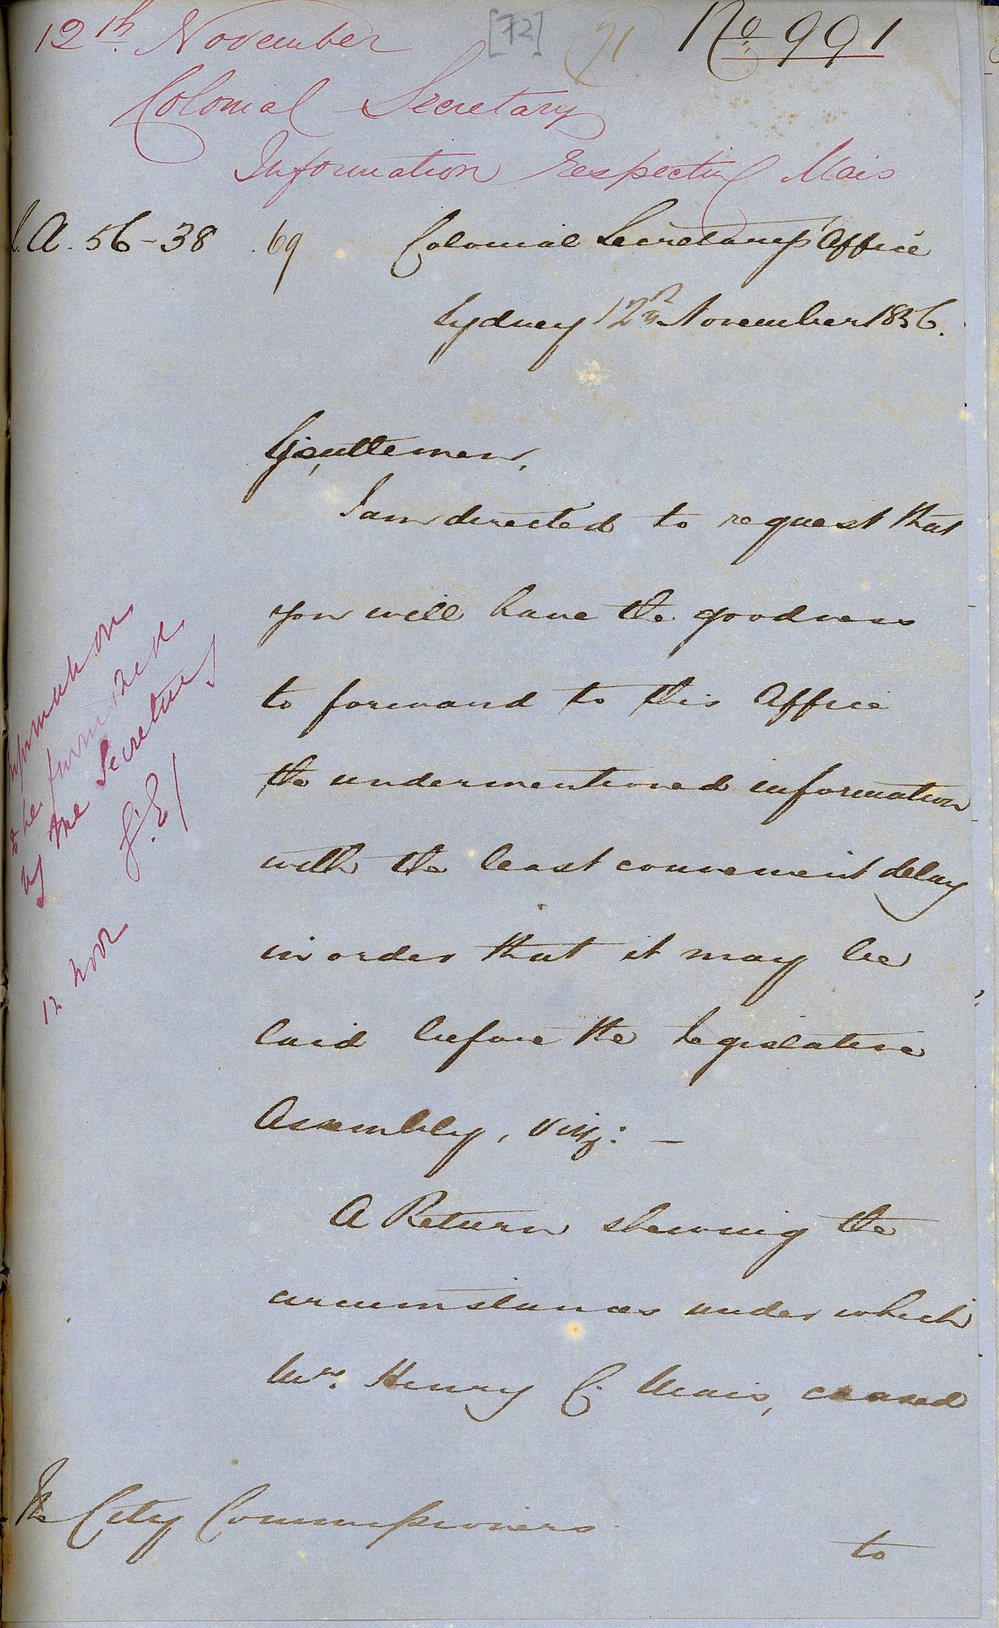 12th November [72] 71 No 991
Colonial Secretary
Information respecting Mais
L.A. 56-38 69 Colonial Secretary's Office
Sydney 12th November 1856.
Gentlemen,
I am directed to request that
you will have the goodness
to forward to this Office
the undermentioned information
with the least convenient delay
in order that it may be
laid before the Legislative
Assembly, viz: —
A Return shewing the
circumstances under which
Mr. Henry C. Mais, ceased
The City Commissioners
to
Information
to be furnished
by the Secretary
G.E/
12 Novr